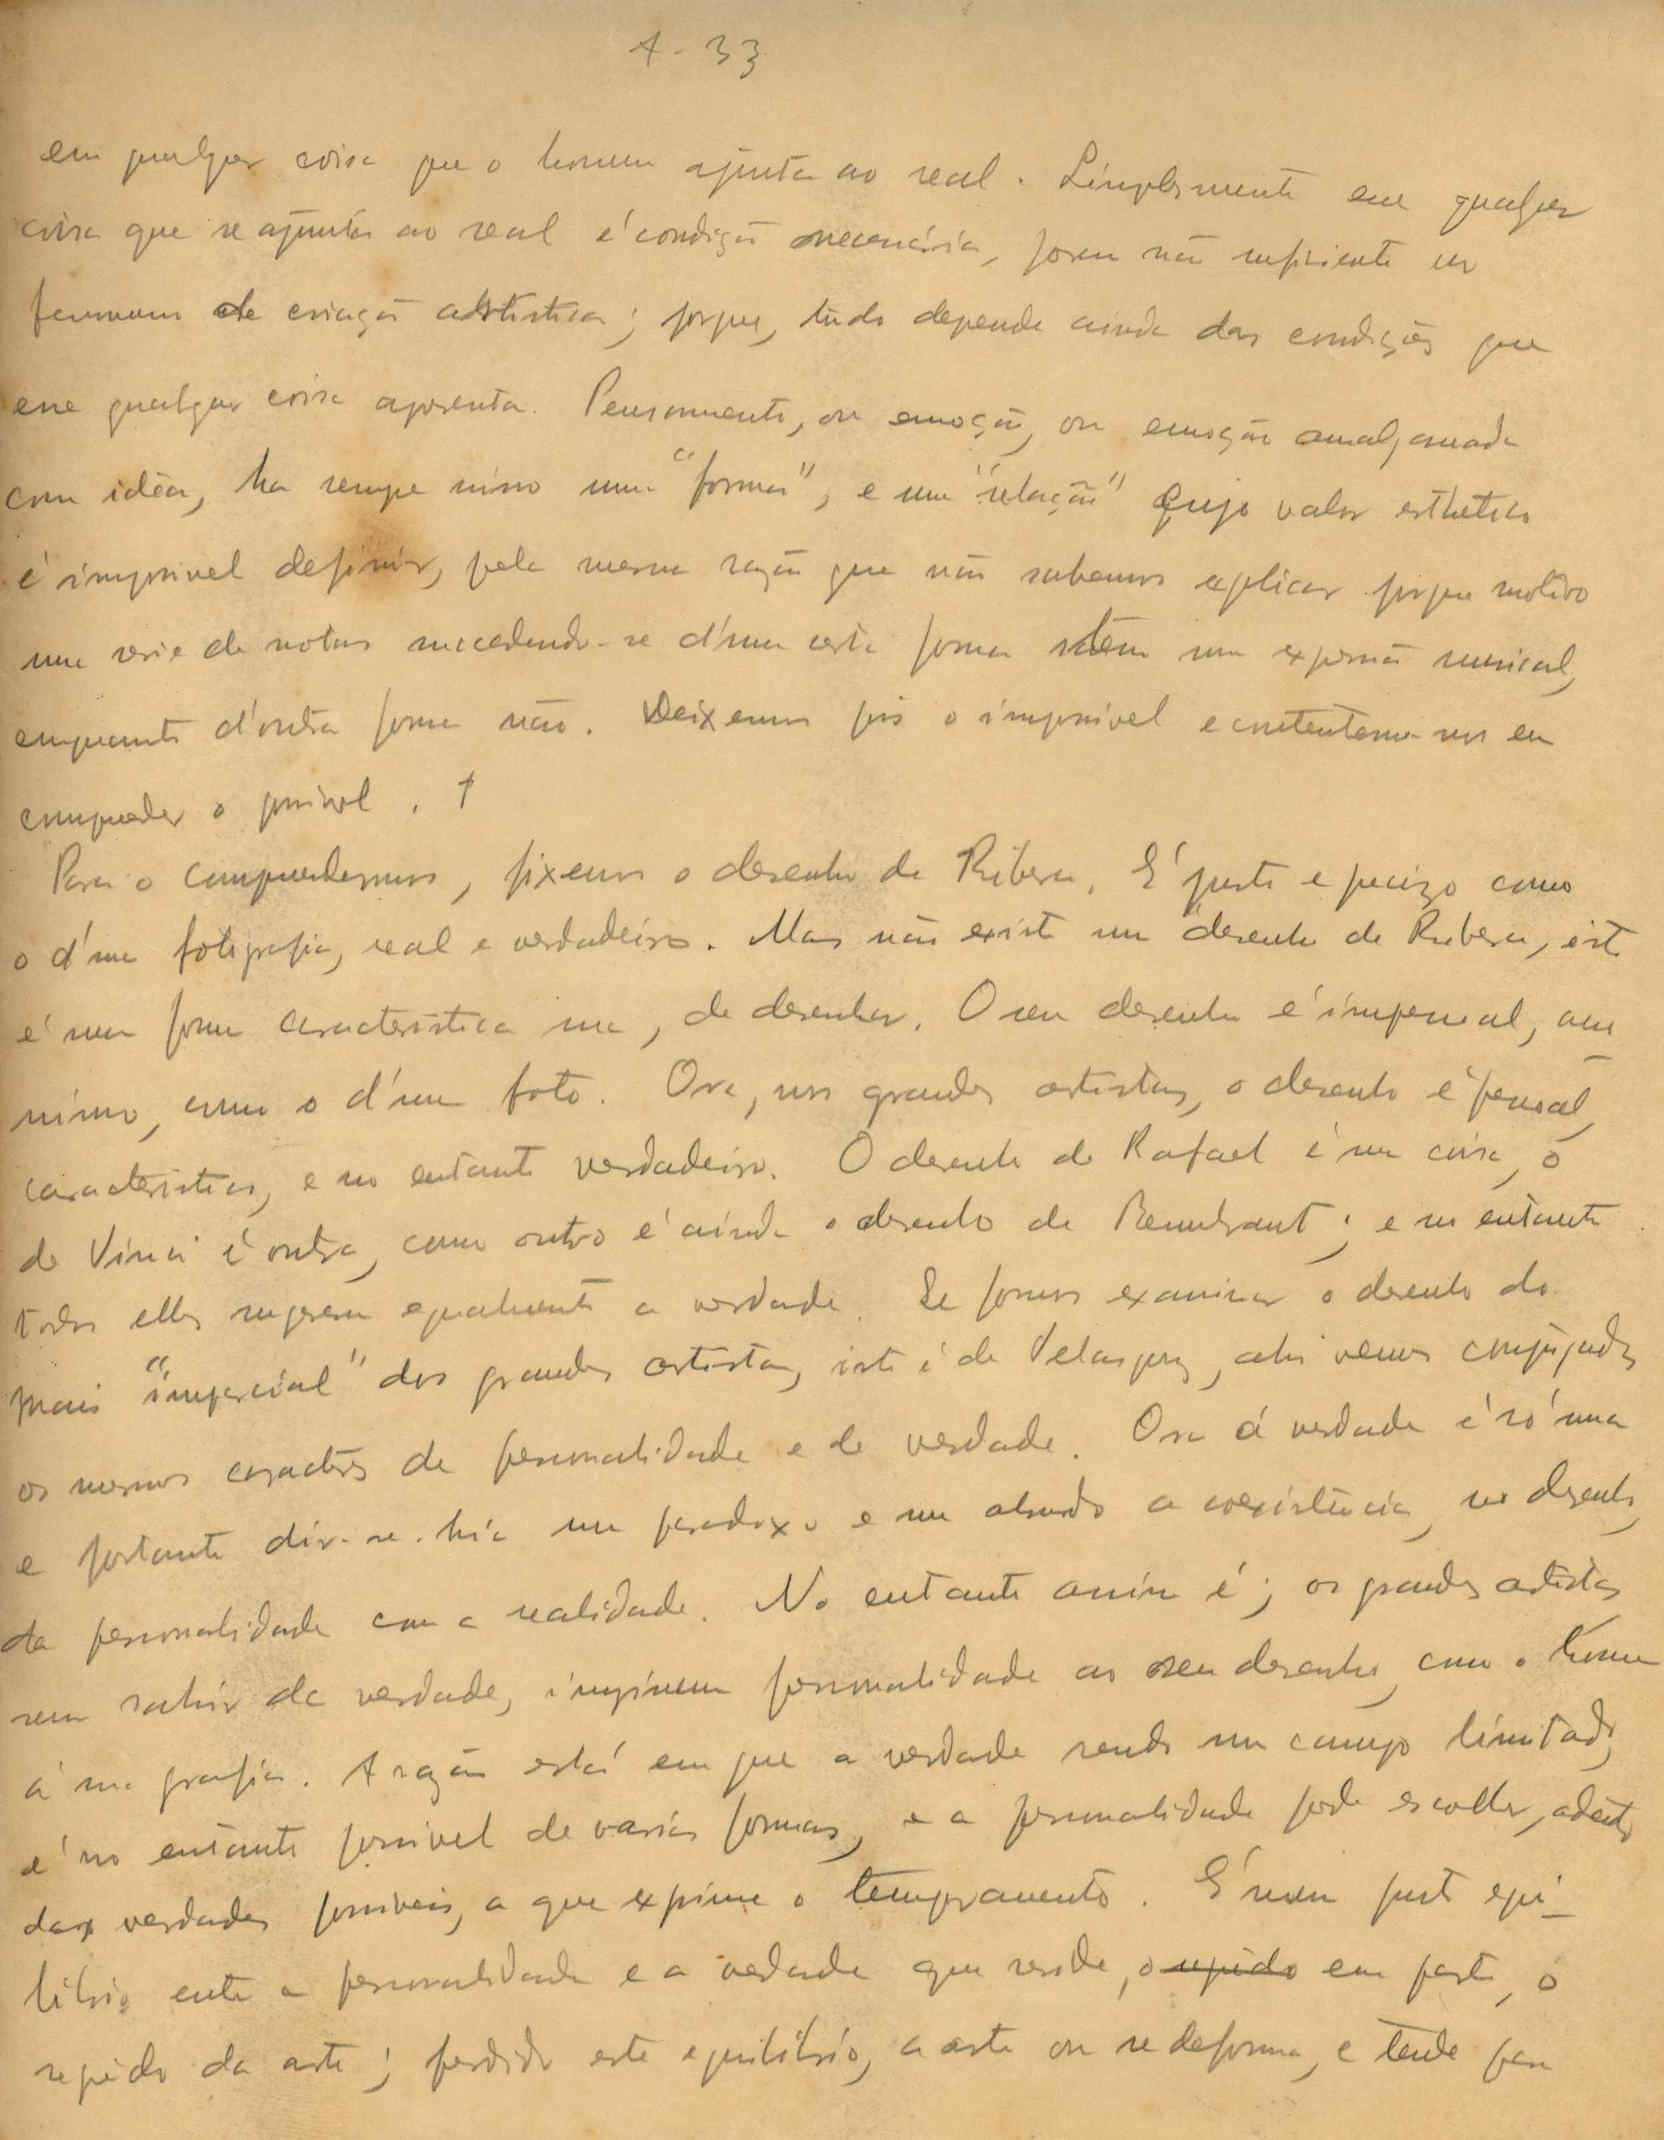 A - 33
em qualquer coisa que o homem ajunta ao real. Simplesmente esse qualquer
coisa que se ajunta ao real é condição necessária, porem não suficiente no
fenomeno de criação artistica; porque, tudo depende ainda das condições que
esse qualquer coisa apresenta. Pensamento, ou emoção, ou emoção amalgamada
com idéa, ha sempre nisso uma "forma", e uma "relação" cujo valor esthetico
é impossivel definir, pela mesma razão que não sabemos explicar porque motivo
uma serie de notas succedendo-se d'uma certa forma têm uma expressão musical,
emquanto d'outra forma não. Deixemos pois o impossivel e contentemo-nos em
comprender o possivel. †
Para o comprendermos, fixemos o desenho de Ribera. É justo e precizo como
o d'uma fotografia, real e verdadeiro. Mas não existe um desenho de Ribera, isto
é uma forma caracteristica sua, de desenhar. O seu desenho é impessoal, anonimo,
como o d'uma foto. Ora, nos grandes artistas, o desenho é pessoal,
caracteristico, e no entanto verdadeiro. O desenho de Rafael é uma coisa, o
de Vinci é outra, como outro é ainda o desenho de Rembrant; e no entanto
todos elles sugerem egualmente a verdade. Se formos examinar o desenho do
mais "imparcial" dos grandes artistas, isto é de Velasquez, ahi vemos conjugados
os mesmos caracteres de personalidade e de verdade. Ora a verdade é só uma
e portanto dir-se-hia um paradoxo e um absurdo a coexistencia, no desenho,
da personalidade com a realidade. No entanto assim é; os grandes artistas
sem sahir da verdade, imprimem personalidade ao seu desenho, como o homem
á sua grafia. A razão está em que a verdade sendo um campo limitado,
é no entanto possivel de varias formas, e a personalidade pode escolher, adentro
das verdades possiveis, a que exprime o temperamento. É n'esse justo equi-
librio entre a personalidade e a verdade que reside, o segredo em parte, o
segredo da arte; perdido este equilibrio, a arte ou se deforma, e tende para